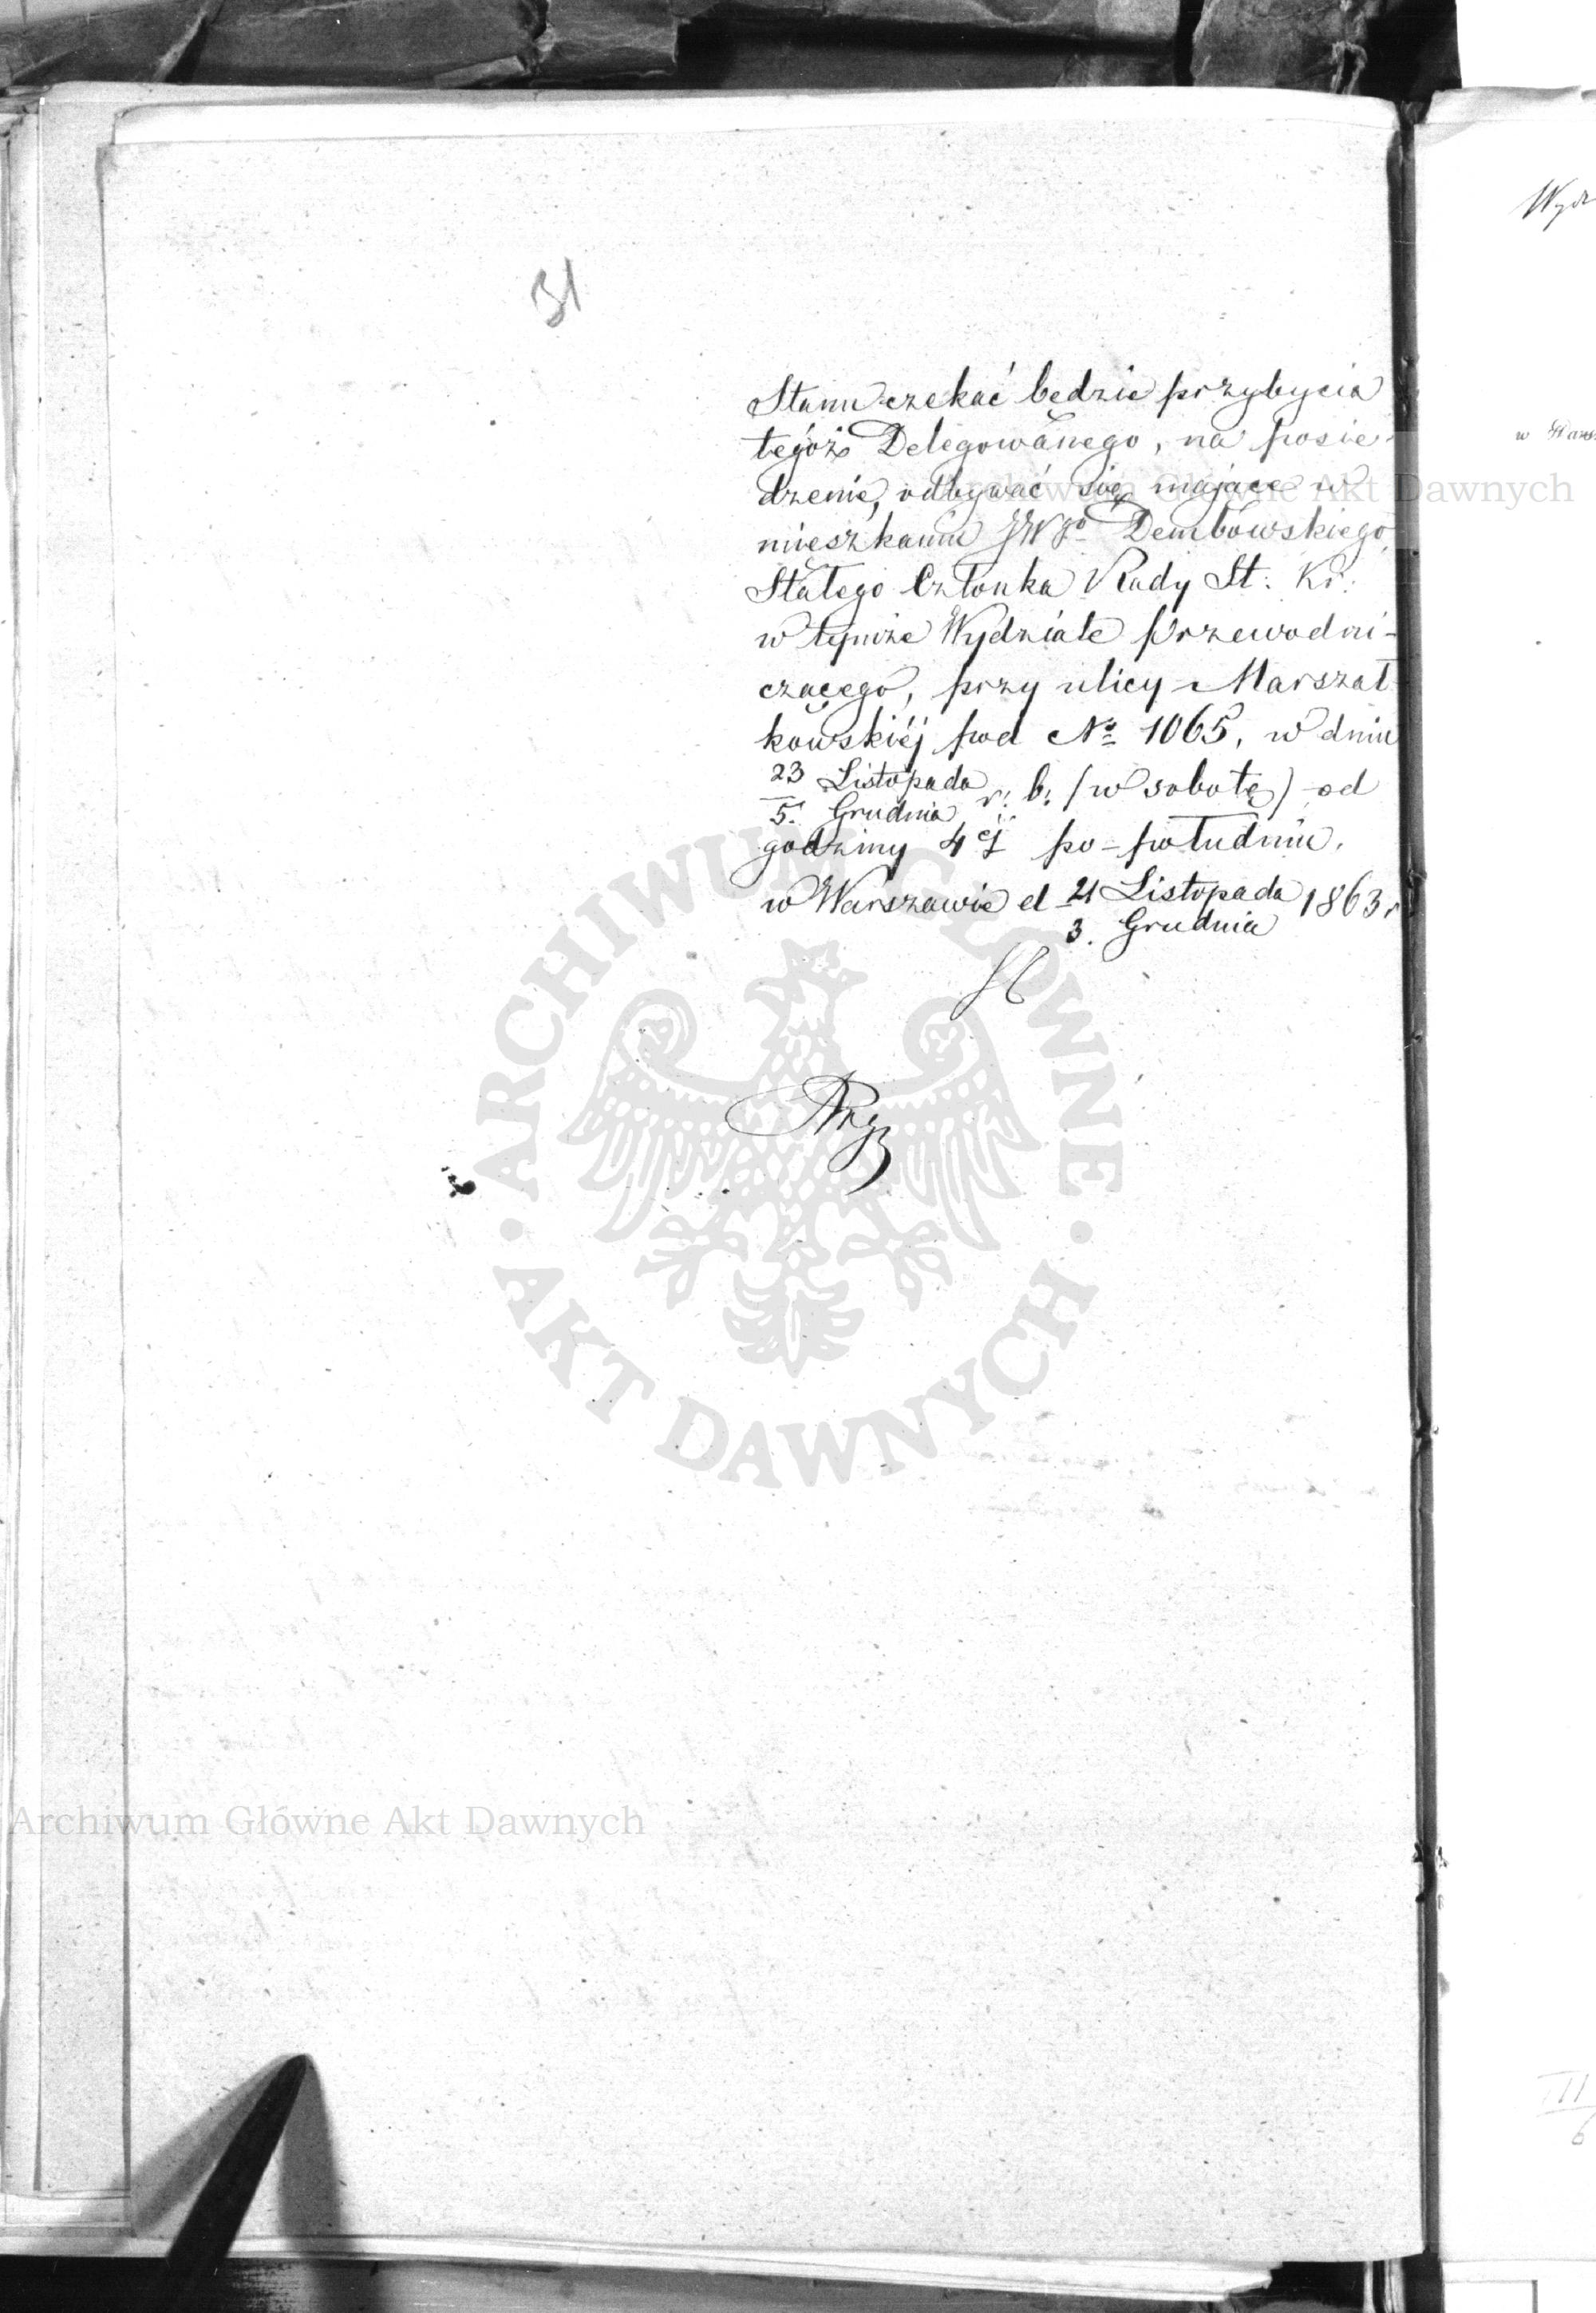 31
Stanu czekać będzie przybycia
tegóż Delegowanego, na posie-
dzenie, odbywać się mające w
mieszkaniu JWgo Dembowskiego
Stałego Członka Rady St: Kr:
w tymże Wydziale Przewodni-
czącego, przy ulicy Marszał
kowskiéj pod No 1065, w dniu
23 Listopada
5. Grudnia r: b: (w sobotę) od
godziny 4éj po-południu.
w Warszawie d 21 Listopada 1863 r
3. Grudnia
ARCHIWUM GŁÓWNE
AKT DAWNYCH
Archiwum Główne Akt Dawnych
Archiwum Główne Akt Dawnych
Wydz
w Wars
III
6